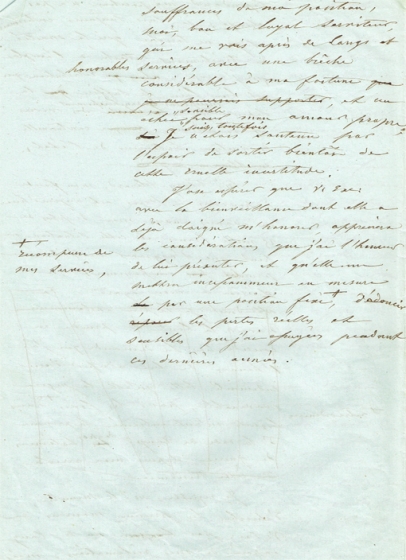 souffrances de ma position,
bon et loyal serviteur,
qui me vois après de longs et
honorables services, avec une brèche
considérable à ma fortune que
je ne pourrais supporter, et un
échec sensible pour mon amour propre
Je suis toutefois par
l'espoir de sortir bientôt de
cette cruelle incertitude.
J'ose espérer que V. Exc.
avec la bienveillance dont elle a
déjà daigné m'honorer, appréciera
les considérations que j'ai l'honneur
de lui présenter, et qu'elle me
mettra incessamment en mesure
par une position fixe, † d'adoucir
réparer les pertes réelles et
sensibles que j'ai éprouvées pendant
ces dernières années.
† récompense de
mes services,